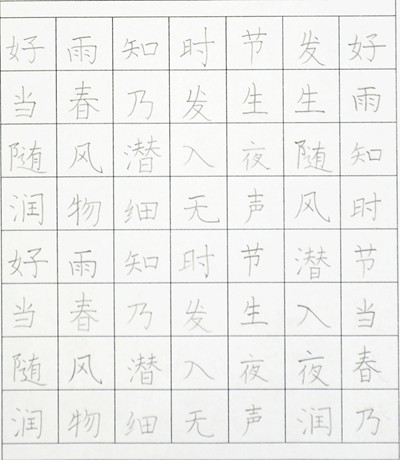 好雨知时节发好
当春乃发生生雨
随风潜入夜随知
润物细无声风时
好雨知时节潜节
当春乃发生入当
随风潜入夜夜春
润物细无声润乃